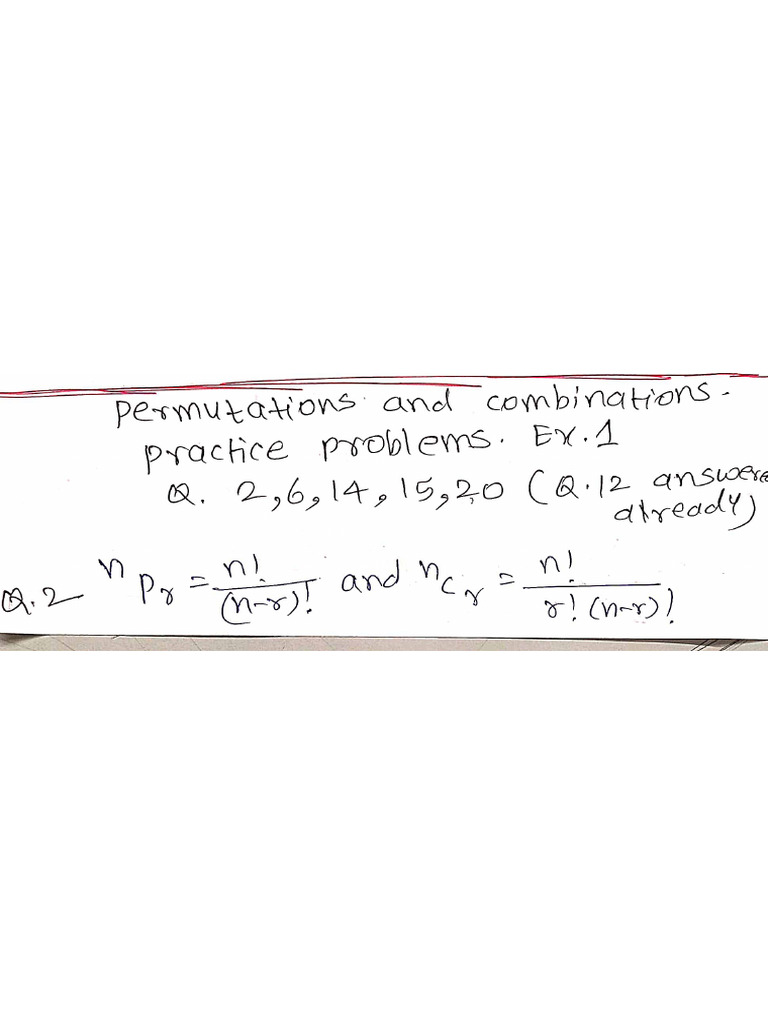 Permutations and combinations.
practice problems. Ex.1
Q. 2,6,14,15,20 (Q.12 answere
already)
Q.2 nPr = n!/(n-r)! and nCr = n!/r!(n-r)!